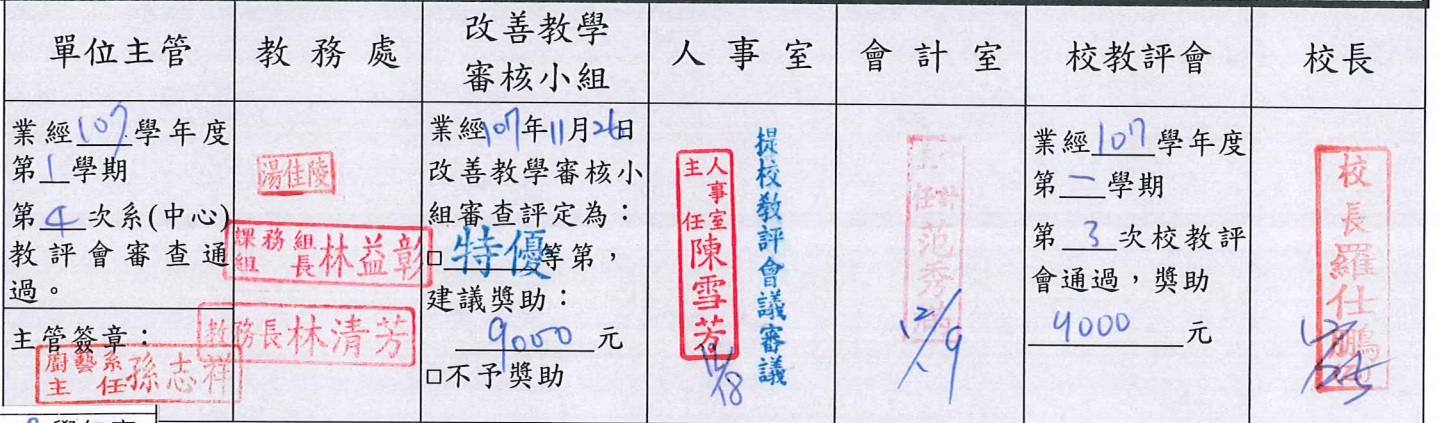 單位主管
教務處
改善教學
審核小組
人事室
會計室
校教評會
校長
業經107學年度
第1學期
第4次系(中心)
教評會審查通
過。
主管簽章：
廚藝系
主任孫志祥
湯佳陵
課務組
組長林益彰
教務長林清芳
業經107年11月26日
改善教學審核小
組審查評定為：
□特優等第，
建議獎助：
9000元
□不予獎助
人事室
主任陳雪芳
提校教評會議審議
范秀
12/9
業經107學年度
第一學期
第3次校教評
會通過，獎助
9000元
校長羅仕鵬
學年度